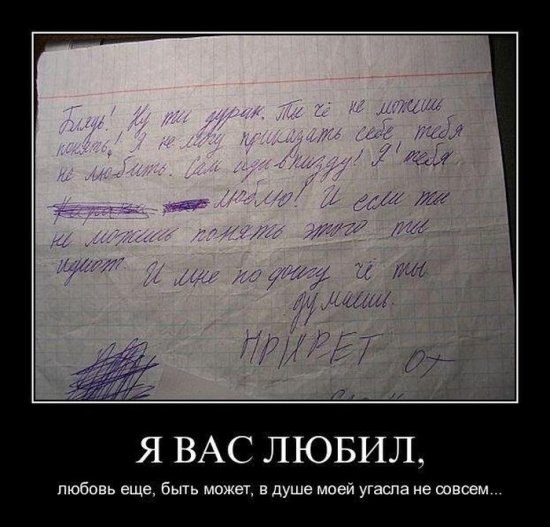 Блядь! Ну ты дурик. Ты чё не можешь
понять! Я не могу приказать себе тебя
не любить. Сам иди в пизду! Я тебя
люблю! И если ты
не можешь понять этого ты
идиот. И мне по фигу чё ты
думаешь.
ПРИВЕТ от
Я ВАС ЛЮБИЛ,
любовь еще, быть может, в душе моей угасла не совсем...